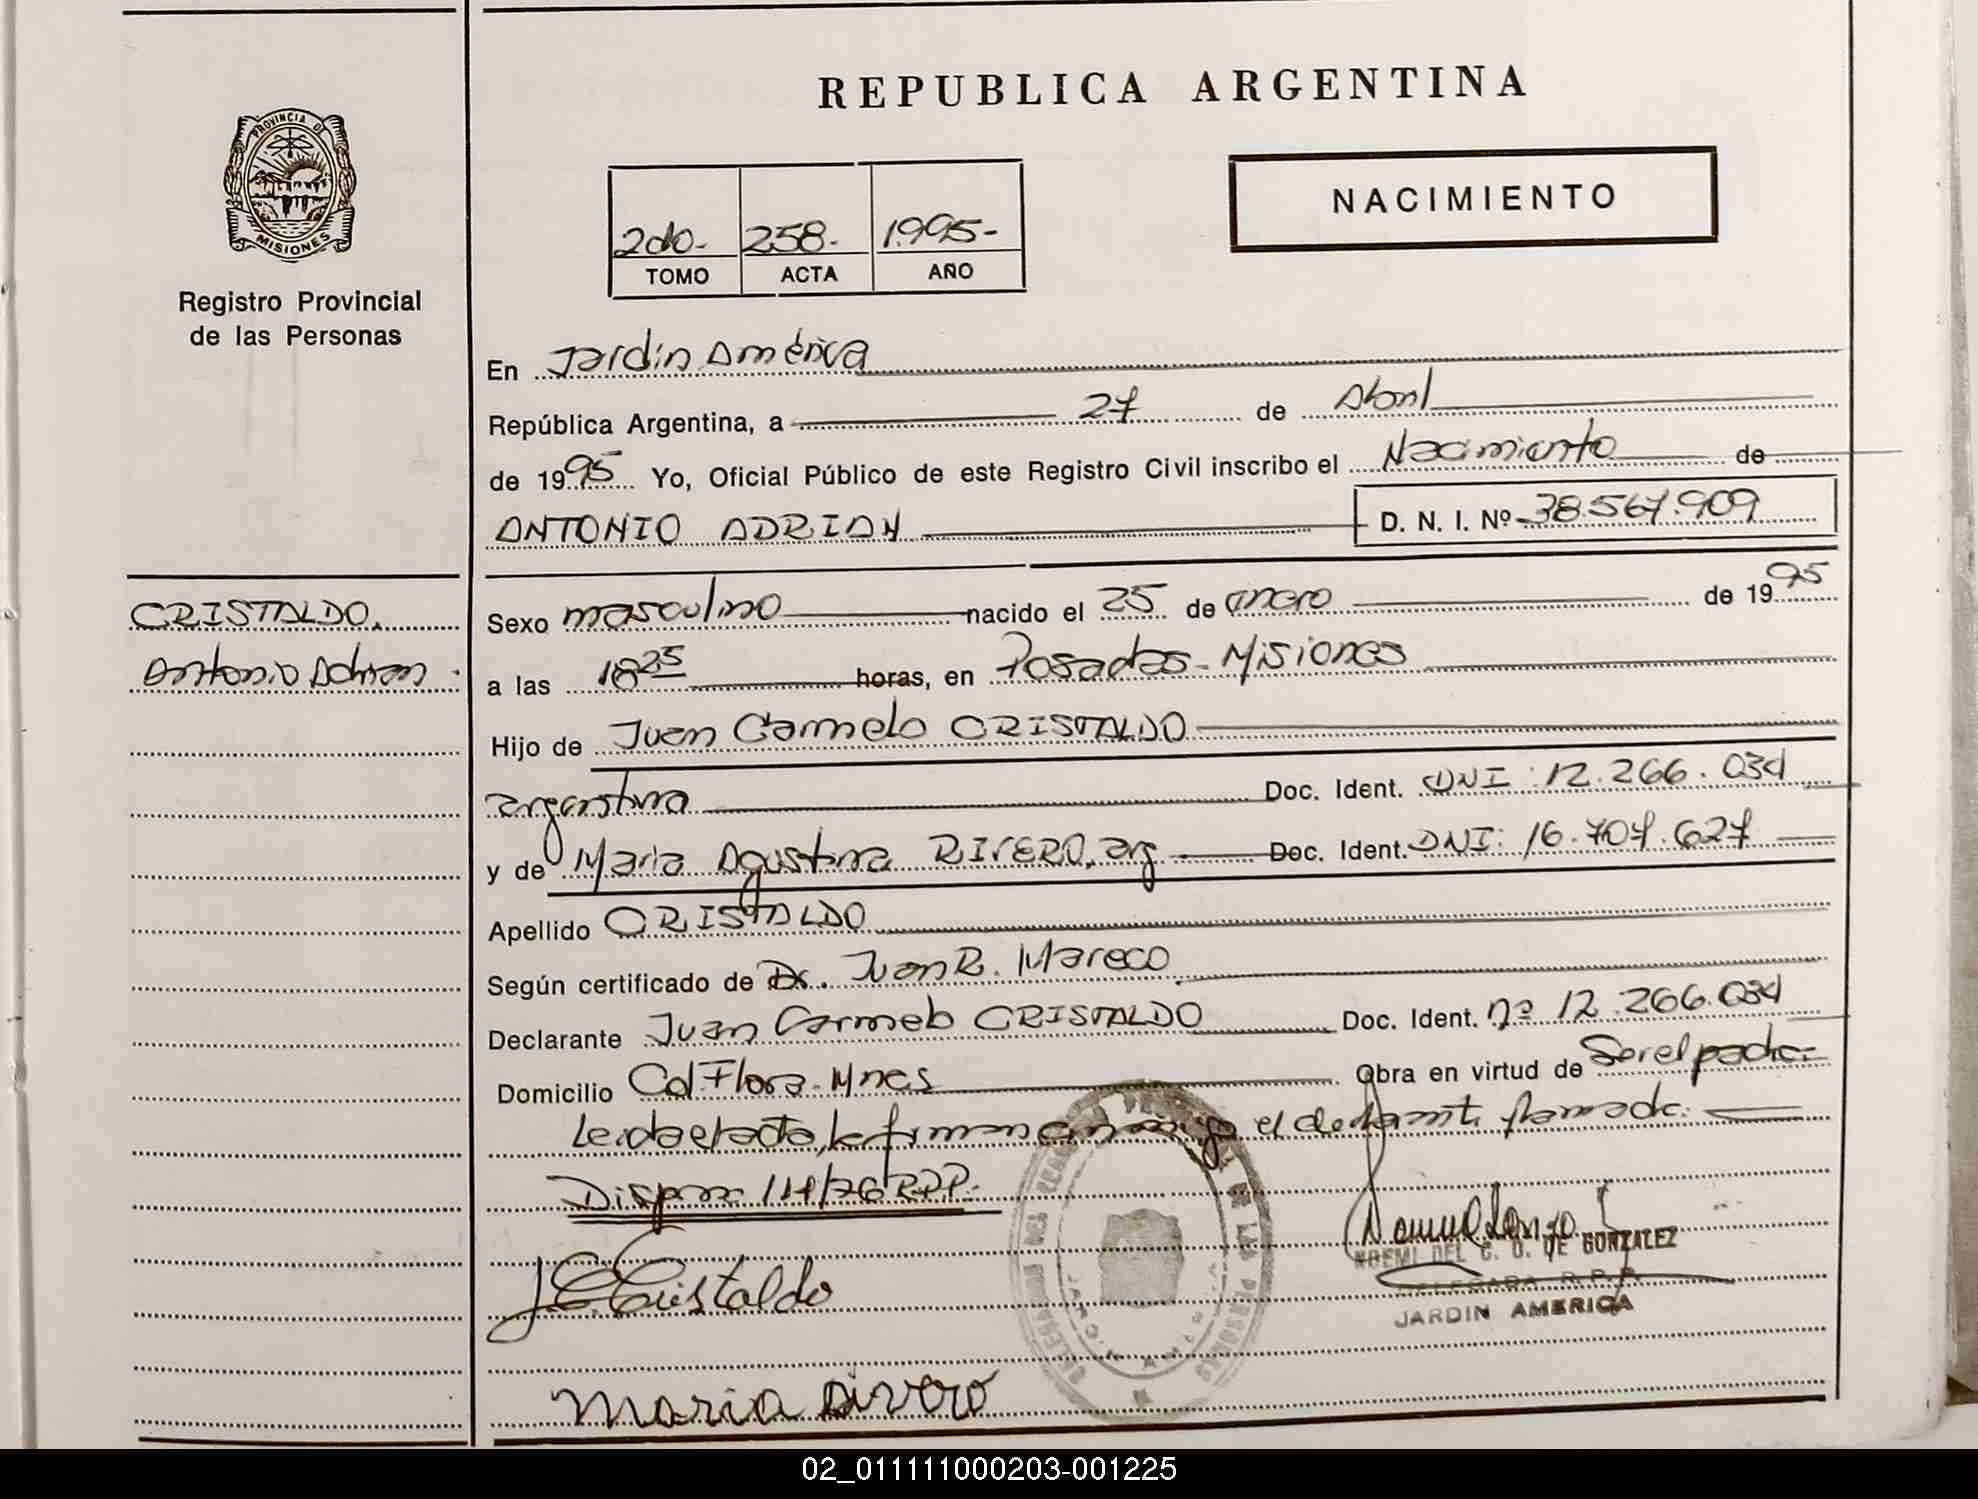 REPUBLICA ARGENTINA
PROVINCIA DE
MISIONES
Registro Provincial
de las Personas
NACIMIENTO
2do- 258- 1.995-
TOMO ACTA AÑO
En Jardin América
República Argentina, a 27 de Abril
de 1995 Yo, Oficial Público de este Registro Civil inscribo el Nacimiento de
ANTONIO ADRIAN D. N. I. Nº 38.567.909
CRISTALDO,
Antonio Adrian
Sexo masculino nacido el 25 de enero de 1995
a las 18 25 horas, en Posadas - Misiones
Hijo de Juan Carmelo CRISTALDO
argentina Doc. Ident. DNI: 12.266.034
y de Maria Agustina RIVERO, arg Doc. Ident. DNI: 16.707.627
Apellido CRISTALDO
Según certificado de Dr. Juan R. Mareco
Declarante Juan Carmelo CRISTALDO Doc. Ident. nº 12.266.034
Domicilio Col. Flora - Mnes Obra en virtud de Ser el padre
Leida el acta, la firman conmigo el declarante
J. C. Cristaldo
GONZALEZ
DELEGADA R.P.P.
JARDIN AMERICA
Maria Rivero
02_011111000203-001225